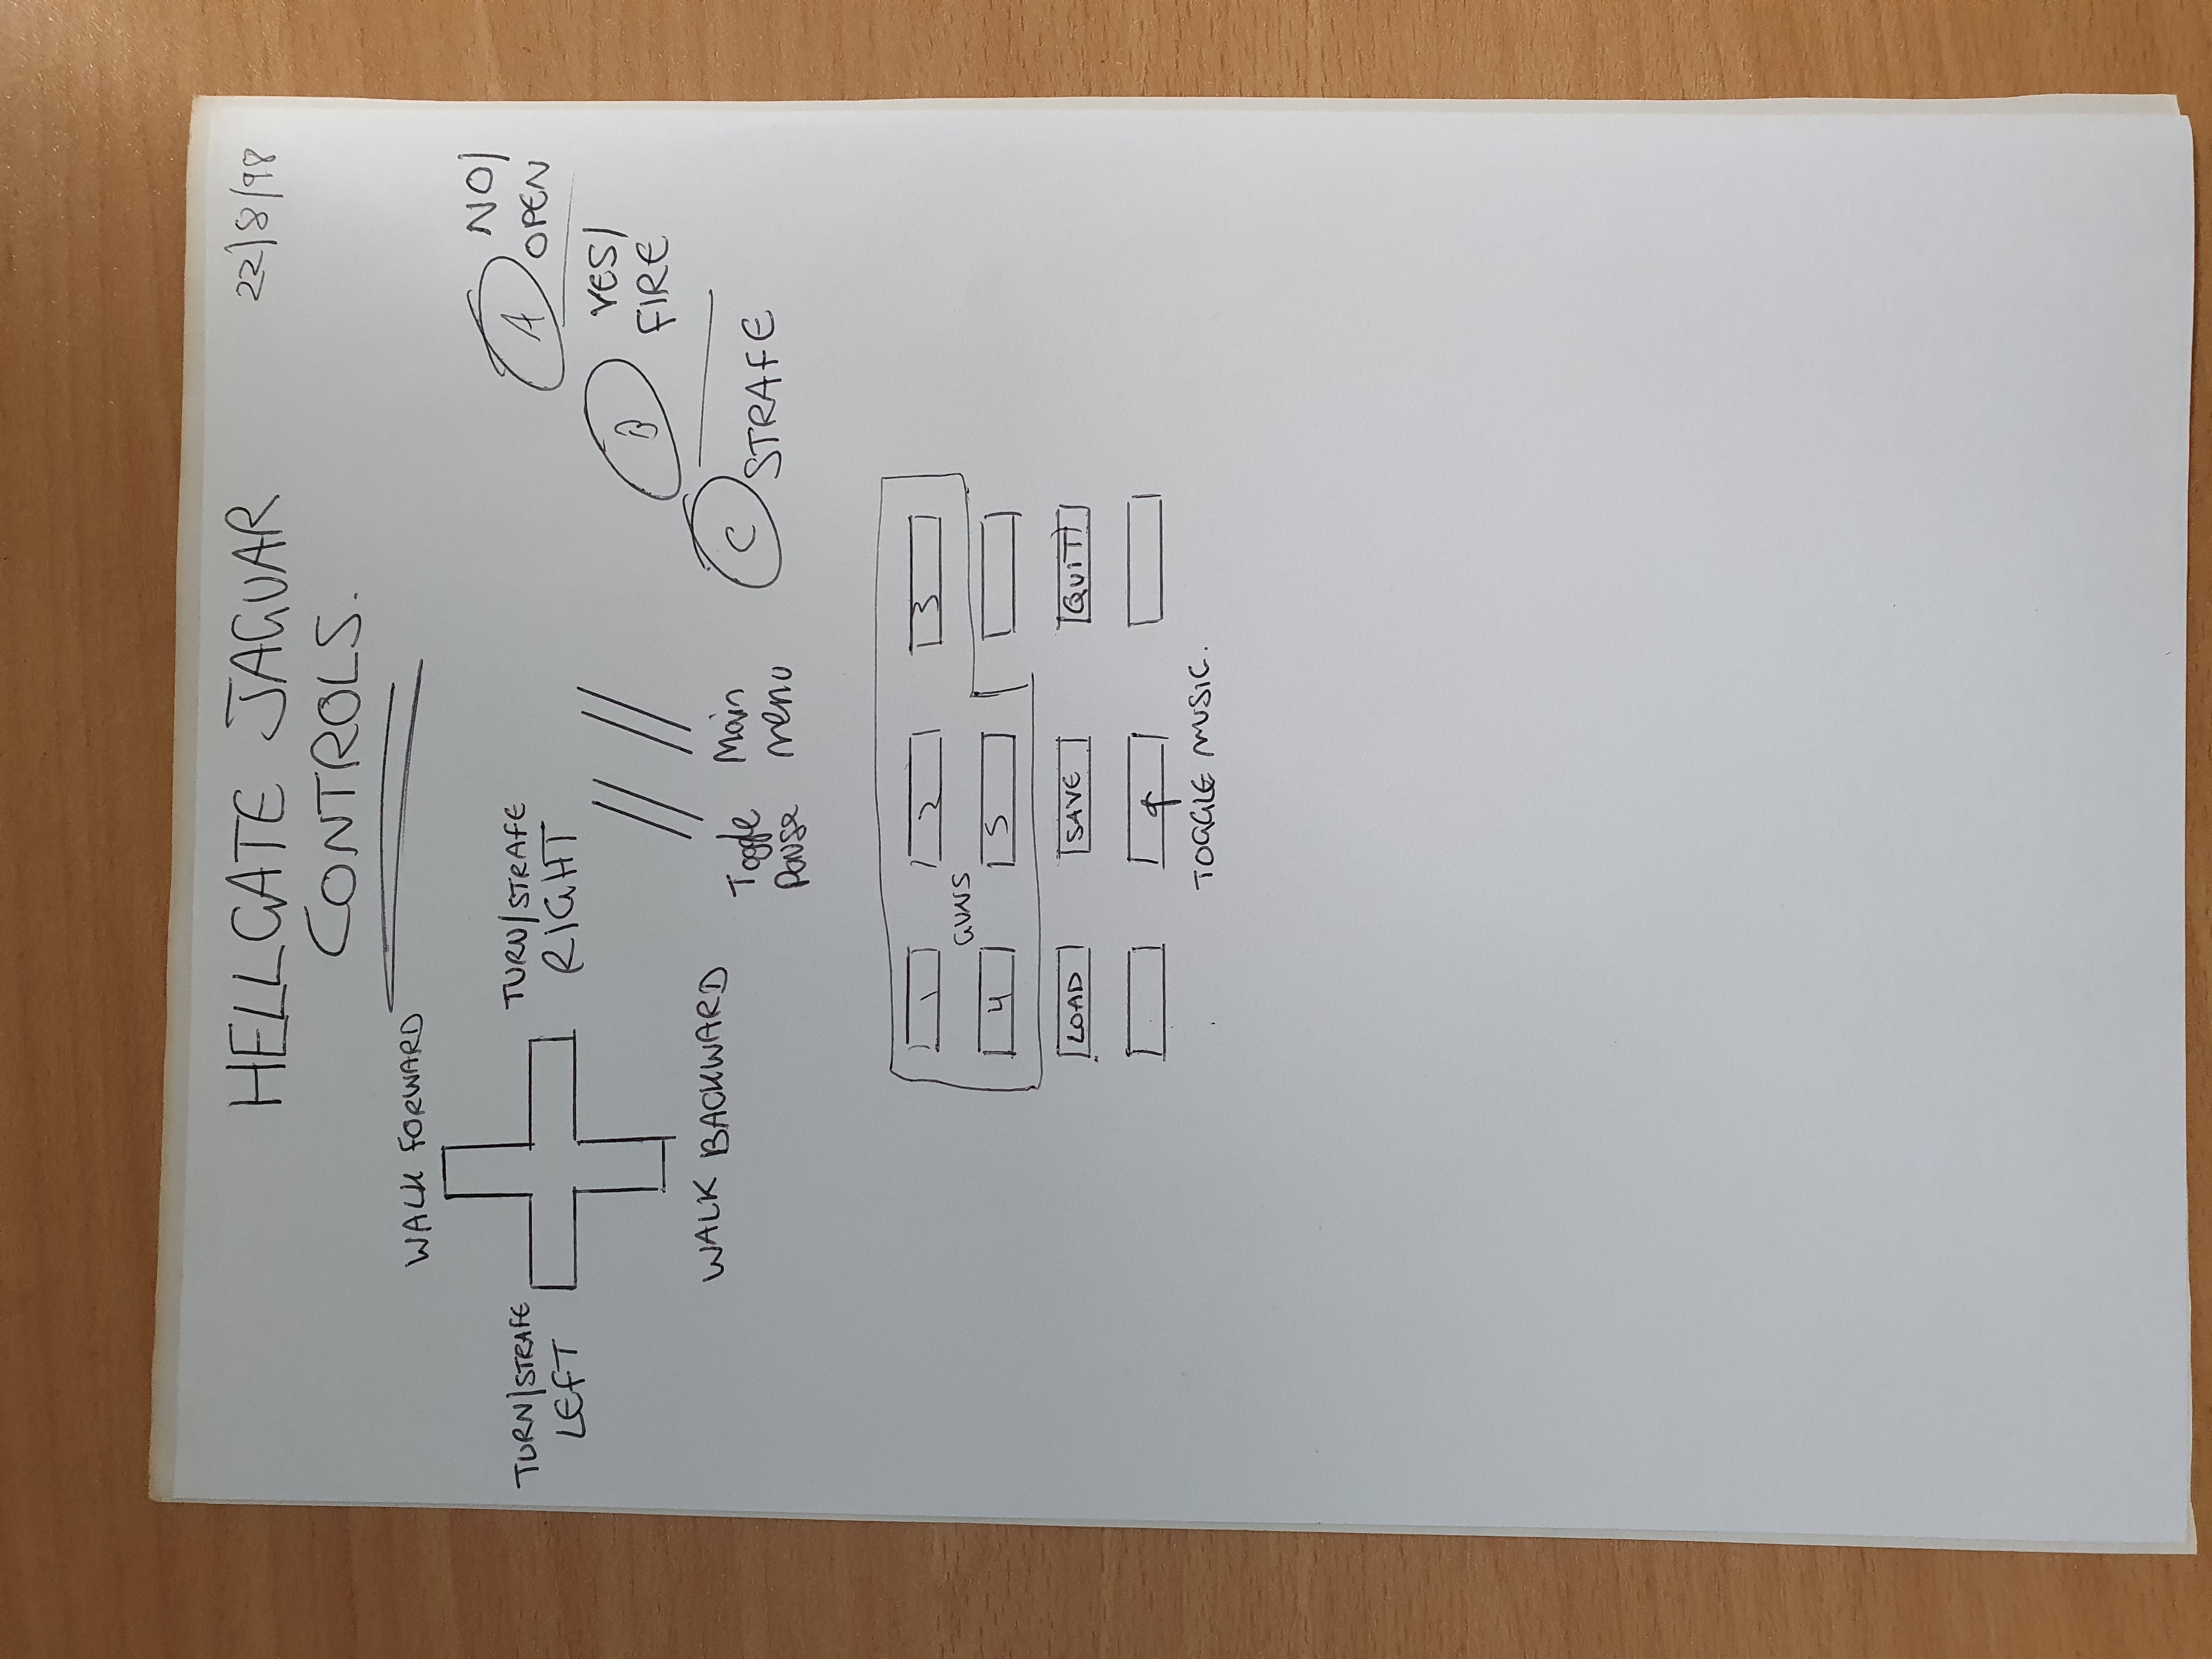 HELLGATE JAGUAR
CONTROLS.
22/8/98
WALK FORWARD
TURN/STRAFE
LEFT
TURN/STRAFE
RIGHT
WALK BACKWARD
Toggle
Pause
Main
menu
A
NO/
OPEN
B
YES/
FIRE
C
STRAFE
1 2 3
GUNS
4 5
LOAD SAVE QUIT
TOGGLE MUSIC.